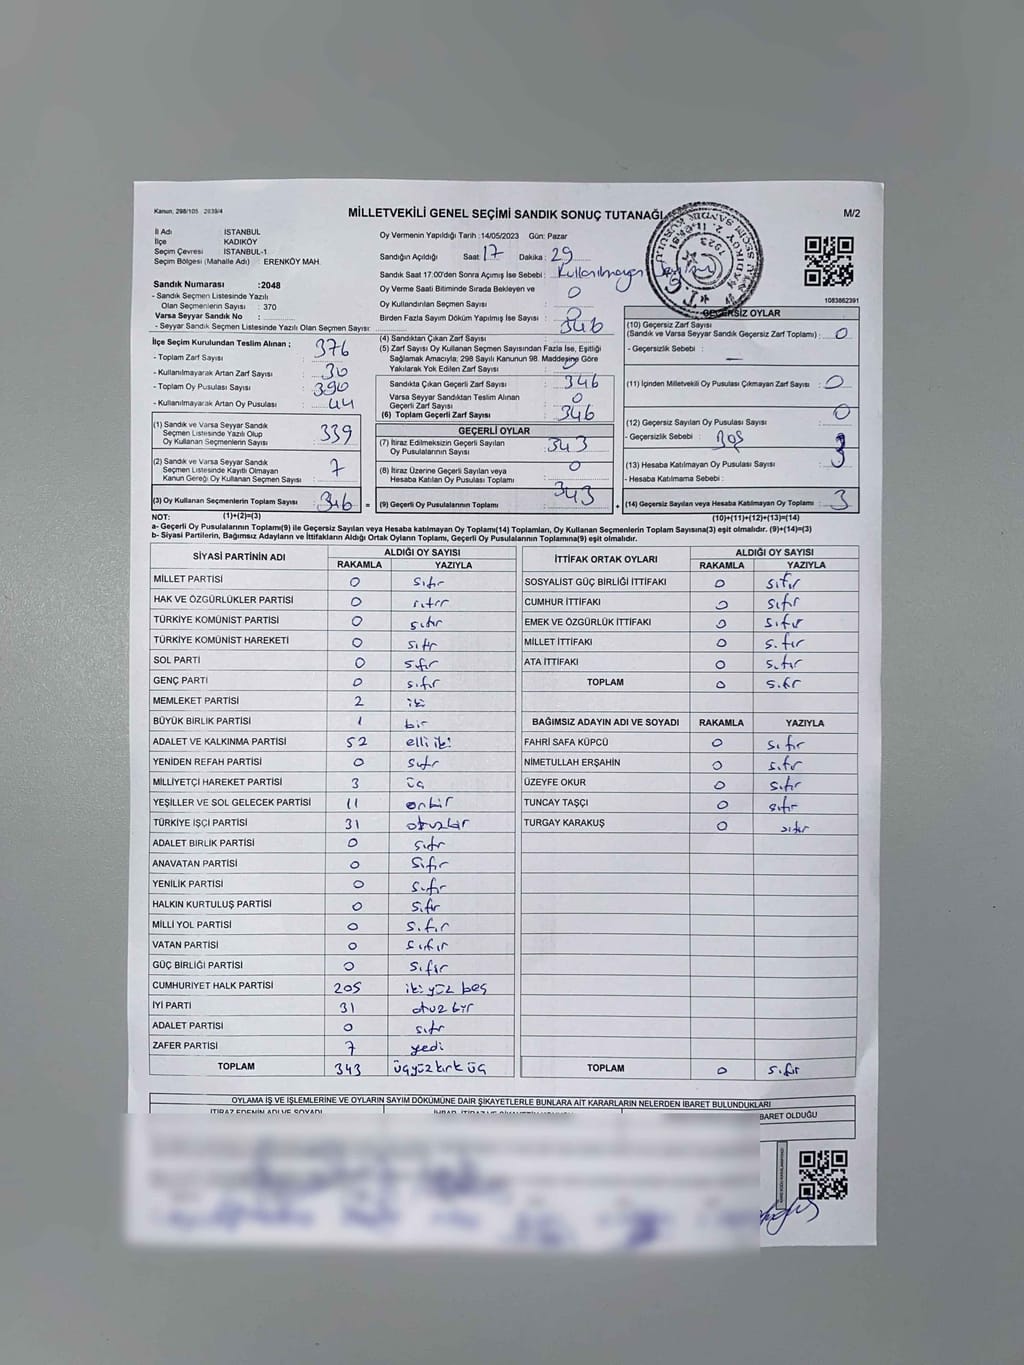 Kanun, 298/105 2839/4
MİLLETVEKİLİ GENEL SEÇİMİ SANDIK SONUÇ TUTANAĞI
M/2
İl Adı İSTANBUL
İlçe KADIKÖY
Seçim Çevresi İSTANBUL-1
Seçim Bölgesi (Mahalle Adı) : ERENKÖY MAH.
Oy Vermenin Yapıldığı Tarih :14/05/2023 Gün: Pazar
Sandığın Açıldığı Saat: 17 Dakika : 29
Sandık Saat 17:00'den Sonra Açımış İse Sebebi : Kullanılmayan
Oy Verme Saati Bitiminde Sırada Bekleyen ve
Oy Kullandırılan Seçmen Sayısı : 0
Birden Fazla Sayım Döküm Yapılmış İse Sayısı : 0
1083882391
Sandık Numarası :2048
- Sandık Seçmen Listesinde Yazılı
Olan Seçmenlerin Sayısı : 370
Varsa Seyyar Sandık No :
- Seyyar Sandık Seçmen Listesinde Yazılı Olan Seçmen Sayısı:
İlçe Seçim Kurulundan Teslim Alınan ;
- Toplam Zarf Sayısı : 376
- Kullanılmayarak Artan Zarf Sayısı : 30
- Toplam Oy Pusulası Sayısı : 390
- Kullanılmayarak Artan Oy Pusulası : 44
(1) Sandık ve Varsa Seyyar Sandık
Seçmen Listesinde Yazılı Olup
Oy Kullanan Seçmenlerin Sayısı : 339
(2) Sandık ve Varsa Seyyar Sandık
Seçmen Listesinde Kayıtlı Olmayan
Kanun Gereği Oy Kullanan Seçmen Sayısı : 7
(3) Oy Kullanan Seçmenlerin Toplam Sayısı : 346 =
(4) Sandıktan Çıkan Zarf Sayısı : 346
(5) Zarf Sayısı Oy Kullanan Seçmen Sayısından Fazla İse, Eşitliği
Sağlamak Amacıyla; 298 Sayılı Kanunun 98. Maddesine Göre
Yakılarak Yok Edilen Zarf Sayısı : 0
Sandıkta Çıkan Geçerli Zarf Sayısı : 346
Varsa Seyyar Sandıktan Teslim Alınan
Geçerli Zarf Sayısı : 0
(6) Toplam Geçerli Zarf Sayısı : 346
GEÇERLİ OYLAR
(7) İtiraz Edilmeksizin Geçerli Sayılan
Oy Pusulalarının Sayısı : 343
(8) İtiraz Üzerine Geçerli Sayılan veya
Hesaba Katılan Oy Pusulası Toplamı : 0
(9) Geçerli Oy Pusulalarının Toplamı : 343 +
GEÇERSİZ OYLAR
(10) Geçersiz Zarf Sayısı
(Sandık ve Varsa Seyyar Sandık Geçersiz Zarf Toplamı) : 0
- Geçersizlik Sebebi : —
(11) İçinden Milletvekili Oy Pusulası Çıkmayan Zarf Sayısı : 0
(12) Geçersiz Sayılan Oy Pusulası Sayısı : 0
- Geçersizlik Sebebi : Boş
(13) Hesaba Katılmayan Oy Pusulası Sayısı : 3
- Hesaba Katılmama Sebebi :
(14) Geçersiz Sayılan veya Hesaba Katılmayan Oy Toplamı : 3
NOT: (1)+(2)=(3) (10)+(11)+(12)+(13)=(14)
a- Geçerli Oy Pusulalarının Toplamı(9) ile Geçersiz Sayılan veya Hesaba katılmayan Oy Toplamı(14) Toplamları, Oy Kullanan Seçmenlerin Toplam Sayısına(3) eşit olmalıdır. (9)+(14)=(3)
b- Siyasi Partilerin, Bağımsız Adayların ve İttifakların Aldığı Ortak Oyların Toplamı, Geçerli Oy Pusulalarının Toplamına(9) eşit olmalıdır.
SİYASİ PARTİNİN ADI ALDIĞI OY SAYISI
RAKAMLA YAZIYLA
MİLLET PARTİSİ 0 sıfır
HAK VE ÖZGÜRLÜKLER PARTİSİ 0 sıfır
TÜRKİYE KOMÜNİST PARTİSİ 0 sıfır
TÜRKİYE KOMÜNİST HAREKETİ 0 sıfır
SOL PARTİ 0 sıfır
GENÇ PARTİ 0 sıfır
MEMLEKET PARTİSİ 2 iki
BÜYÜK BİRLİK PARTİSİ 1 bir
ADALET VE KALKINMA PARTİSİ 52 elli iki
YENİDEN REFAH PARTİSİ 0 sıfır
MİLLİYETÇİ HAREKET PARTİSİ 3 üç
YEŞİLLER VE SOL GELECEK PARTİSİ 11 onbir
TÜRKİYE İŞÇİ PARTİSİ 31 otuzbir
ADALET BİRLİK PARTİSİ 0 sıfır
ANAVATAN PARTİSİ 0 sıfır
YENİLİK PARTİSİ 0 sıfır
HALKIN KURTULUŞ PARTİSİ 0 sıfır
MİLLİ YOL PARTİSİ 0 sıfır
VATAN PARTİSİ 0 sıfır
GÜÇ BİRLİĞİ PARTİSİ 0 sıfır
CUMHURİYET HALK PARTİSİ 205 ikiyüz beş
İYİ PARTİ 31 otuz bir
ADALET PARTİSİ 0 sıfır
ZAFER PARTİSİ 7 yedi
TOPLAM 343 üçyüz kırk üç
İTTİFAK ORTAK OYLARI ALDIĞI OY SAYISI
RAKAMLA YAZIYLA
SOSYALİST GÜÇ BİRLİĞİ İTTİFAKI 0 sıfır
CUMHUR İTTİFAKI 0 sıfır
EMEK VE ÖZGÜRLÜK İTTİFAKI 0 sıfır
MİLLET İTTİFAKI 0 sıfır
ATA İTTİFAKI 0 sıfır
TOPLAM 0 sıfır
BAĞIMSIZ ADAYIN ADI VE SOYADI RAKAMLA YAZIYLA
FAHRİ SAFA KÜPCÜ 0 sıfır
NİMETULLAH ERŞAHİN 0 sıfır
ÜZEYFE OKUR 0 sıfır
TUNCAY TAŞÇI 0 sıfır
TURGAY KARAKUŞ 0 sıfır
TOPLAM 0 sıfır
OYLAMA İŞ VE İŞLEMLERİNE VE OYLARIN SAYIM DÖKÜMÜNE DAİR ŞİKAYETLERLE BUNLARA AİT KARARLARIN NELERDEN İBARET BULUNDUKLARI
İTİRAZ EDENİN ADI VE SOYADI
İBARET OLDUĞU